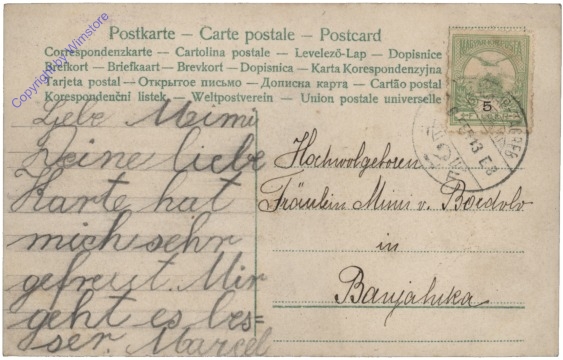 Postkarte – Carte postale – Postcard
Correspondenzkarte – Cartolina postale – Levelező-Lap – Dopisnice
Brefkort – Briefkaart – Brevkort – Dopisnica – Karta Korespondenzyjna
Tarjeta postal – Открытое письмо – Дописна карта – Cartão postal
Korespondenční listek – Weltpostverein – Union postale universelle
Copyright by Wimstore
5
Liebe Mimi
Deine liebe
Karte hat
mich sehr
gefreut. Mir
geht es bes=
ser. Marcel
Hochwolgeboren
Fräulein Mimi v.
in
Banjaluka